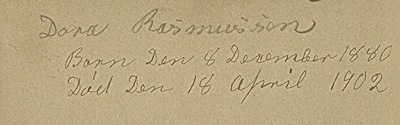 Dora Rasmussen
Born Den 8 December 1880
Død Den 18 April 1902